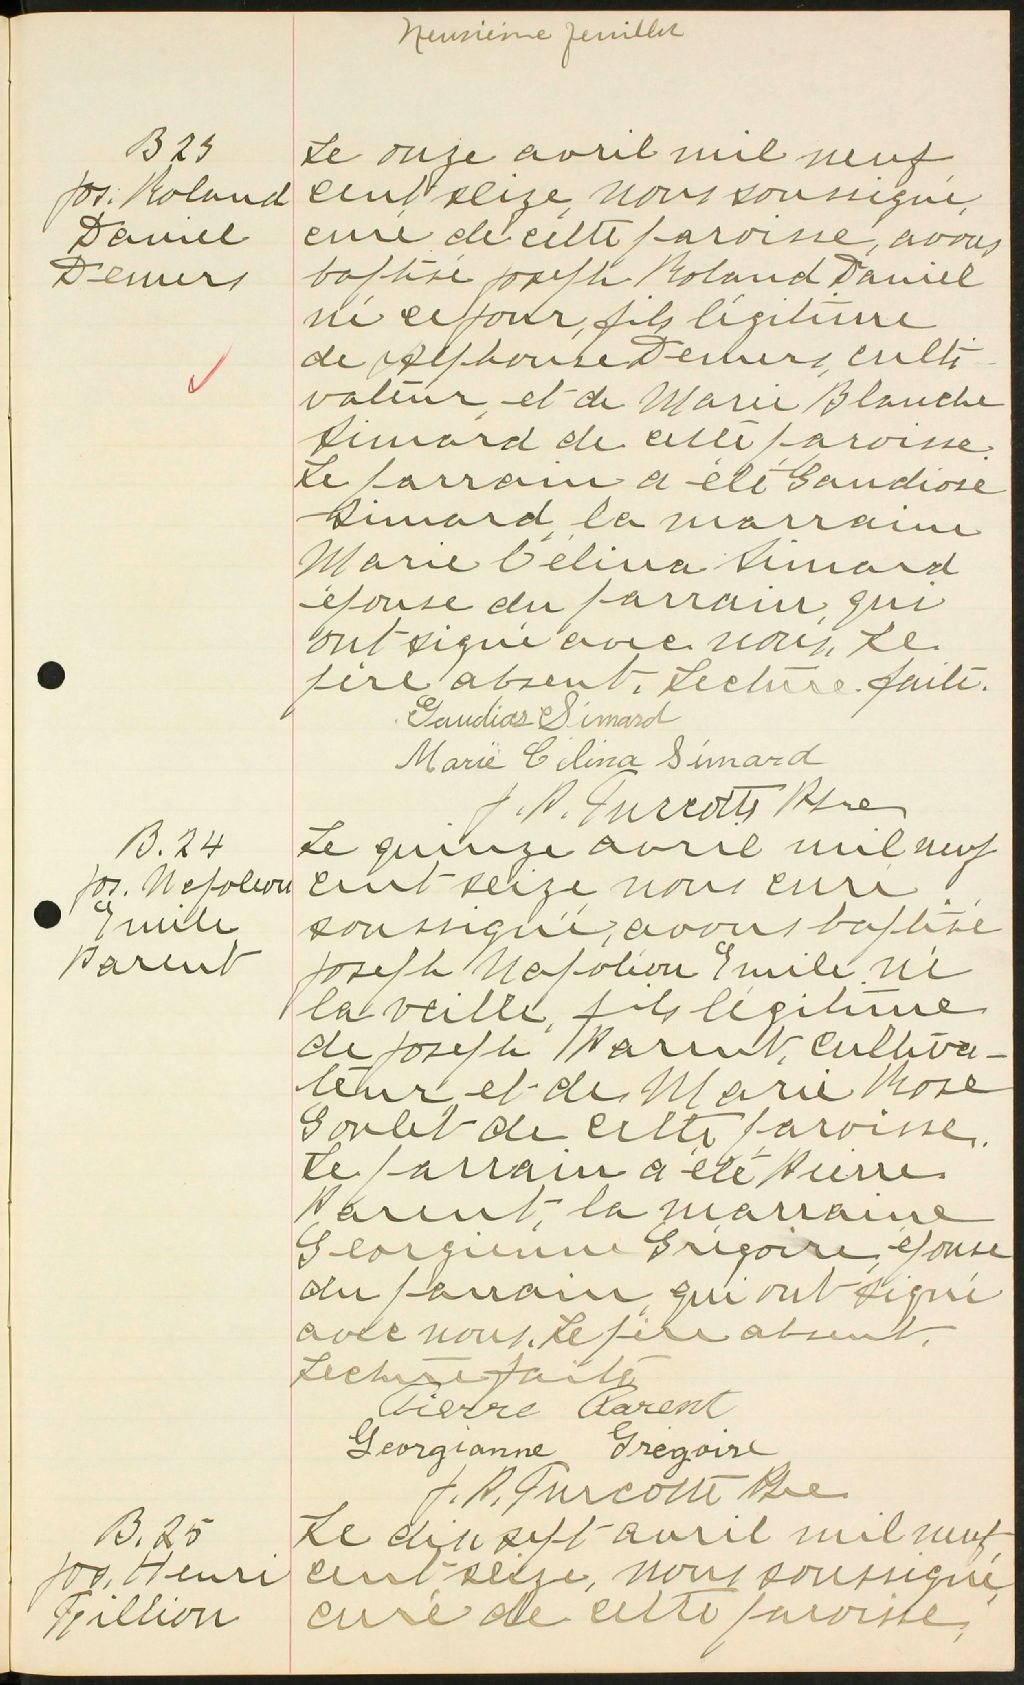 Neusième feuillet
B 23
Jos. Roland
Daniel
Demers
Le onze avril mil neuf
cent seize, nous soussigné,
curé de cette paroisse, avons
baptisé Joseph Roland Daniel
né ce jour, fils légitime
de Alphonse Demers, culti-
vateur, et de Marie Blanche
Simard de cette paroisse.
Le parrain a été Gaudiose
Simard, la marraine
Marie Célina Simard
épouse du parrain, qui
ont signé avec nous. Le
père absent. Lecture faite.
Gaudias Simard
Marie Célina Simard
J. A. Turcotte Ptre
B. 24
Jos. Napoléon
Emile
Parent
Le quinze avril mil neuf
cent seize, nous curé
soussigné, avons baptisé
Joseph Napoléon Emile né
la veille, fils légitime
de Joseph Parent, cultiva-
teur, et de Marie Rose
Goulet de cette paroisse.
Le parrain a été Pierre
Parent, la marraine
Georgienne Grégoire, épouse
du parrain, qui ont signé
avec nous. Le père absent.
Lecture faite
Pierre Parent
Georgianne Grégoire
J. A. Turcotte Ptre
B. 25
Jos. Henri
Fillion
Le dix sept avril mil neuf
cent seize, nous soussigné,
curé de cette paroisse,